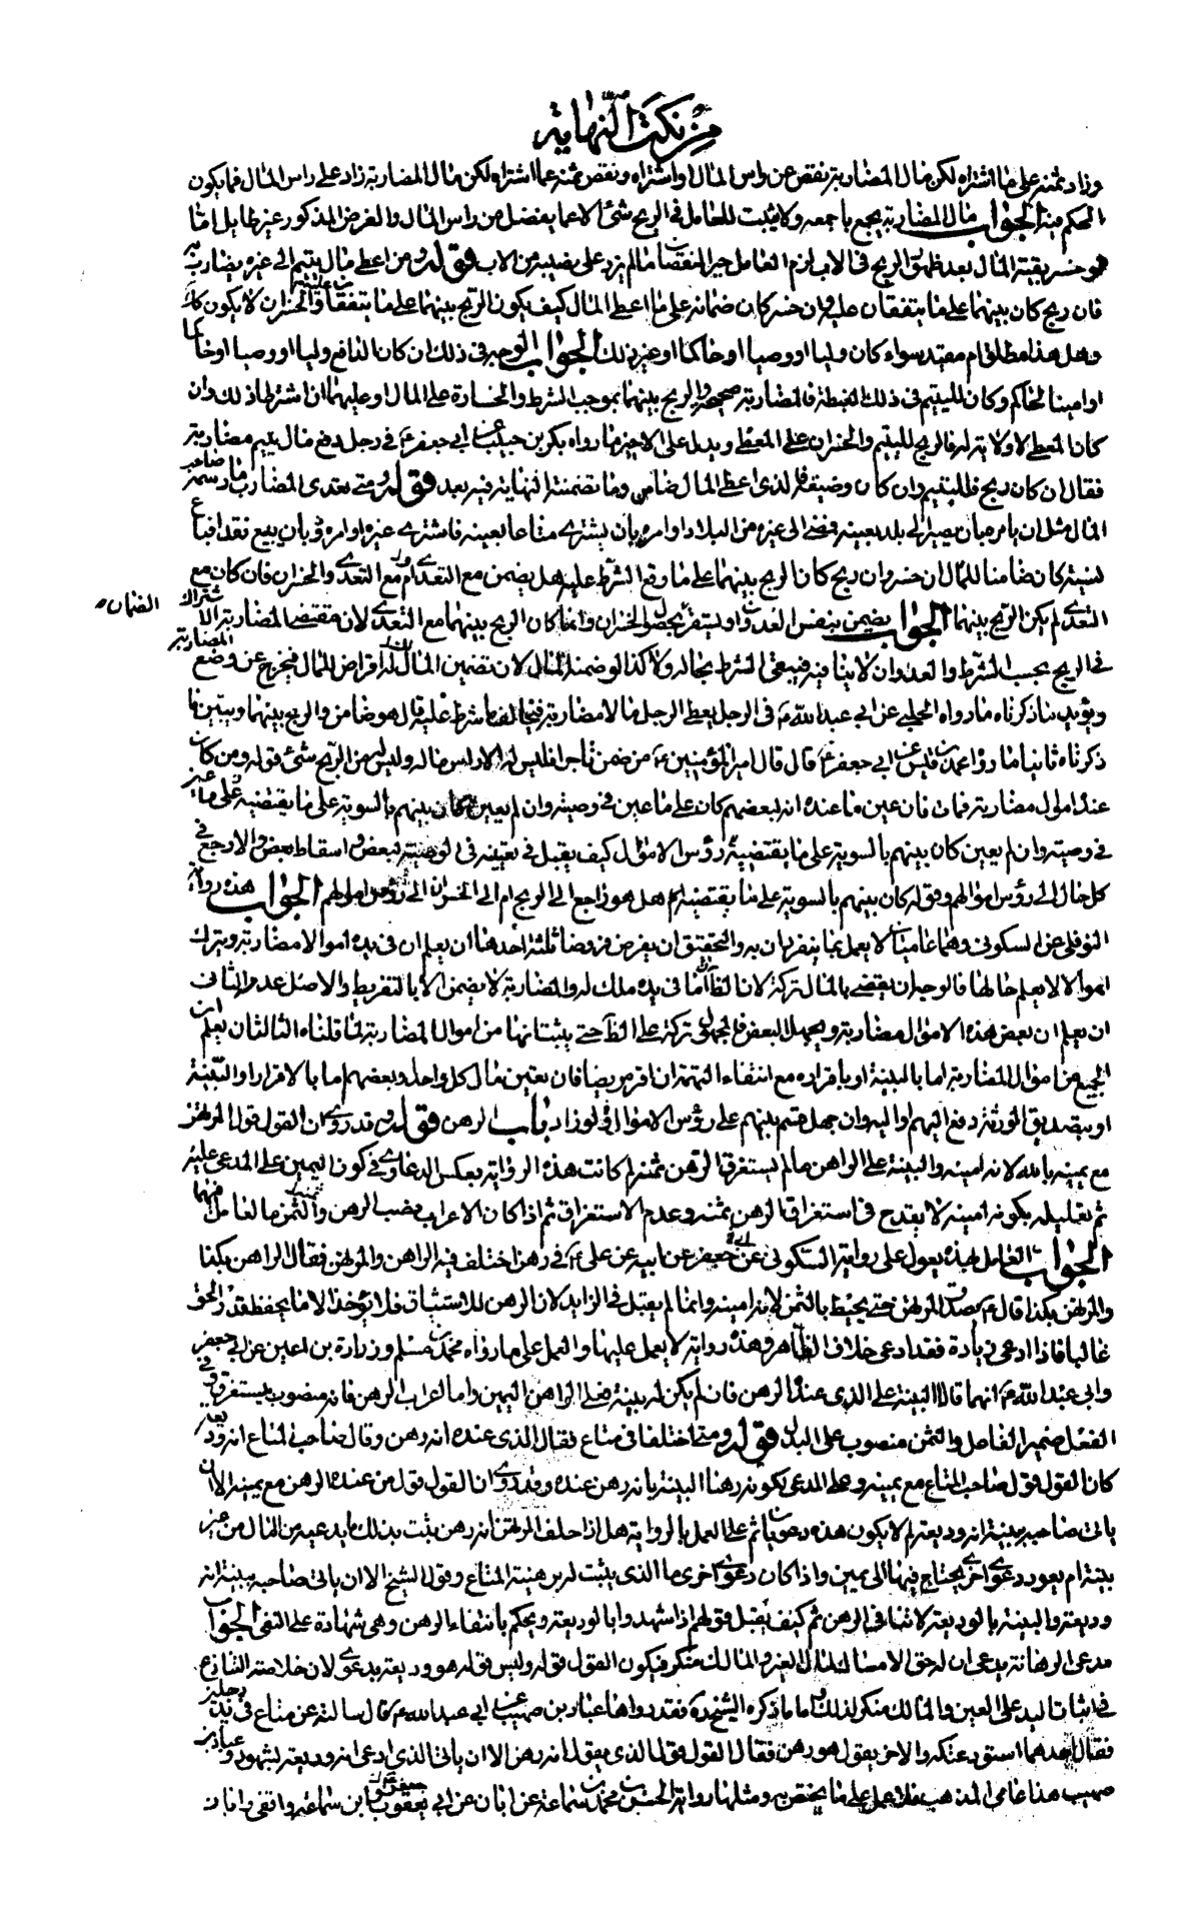 من نكت النهاية
وزاد ثمنه على ما اشتراه لكن مال المضاربة نقص عن راس المال او اشتراه ونقص ثمنه عما اشتراه لكن مال المضاربة زاد على راس المال فما يكون
الحكم فيه الجواب مال المضاربة يجمع باجمعه ولا يثبت للعامل في الربح شئ الا عما يفضل من راس المال والغرض المذكور غير طايل اما
لو خسر بقية المال بعد ظهور الربح في الاب لزم العامل جبر النقصان ما لم يزد على نصيبه من الاب قوله ومن اعطى مال يتيم الى غيره مضاربة
فان ربح كان بينهما على ما يتفقان عليه وان خسر كان ضمانه على من اعطى المال كيف يكون الربح بينهما على ما يتفقان عليه والخسران لا يكون كذلك
وهل هذا مطلق ام مقيد سواء كان وليا او وصيا او حاكما او غير ذلك الجواب الوجه في ذلك ان كان الدافع وليا او وصيا او حاكما
او امينا لحاكم وكان لليتيم في ذلك الغبطة فالمضاربة صحيحة والربح بينهما بموجب الشرط والخسارة على المال او عليهما ان اشترطا ذلك وان
كان المعطي لا ولاية له فالربح لليتيم والخسران على المعطي ويدل على الاخير ما رواه بكر بن حبيب عن ابي جعفر ع في رجل دفع مال يتيم مضاربة
فقال ان كان ربح فلليتيم وان كان وضيعة فالذي اعطى المال ضامن وما تضمنته النهاية فيه بعد قوله ومتى تعدى المضارب ما رسمه صاحب
المال مثل ان يامره بان يصير الى بلد بعينه فمضى الى غيره من البلاد او امره بان يشتري متاعا بعينه فاشترى غيره او امره بان يبيع نقدا فباع
نسيئة كان ضامنا للمال ان خسر وان ربح كان الربح بينهما على ما وقع الشرط عليه هل يضمن مع التعدي او مع التعدي والخسران فان كان مع
التعدي لم يكن الربح بينهما الجواب يضمن بنفس العدوان ويستقر بحصول الخسران وانما كان الربح بينهما مع التعدي لان مقتضى المضاربة الاشتراك
في الربح بحسب الشرط والعدوان لا ينافيه فيبقى الشرط بحاله ولا كذا لو ضمنه المال لان تضمين المال له اقراض للمال فيخرج عن وضع المضاربة
الضمان
ويؤيد ما ذكرناه ما رواه الحلبي عن ابي عبد الله ع في الرجل يعطي الرجل مالا مضاربة فيخالف ما شرط عليه قال هو ضامن والربح بينهما ويبين ما
ذكرناه ثانيا ما رواه محمد بن قيس عن ابي جعفر ع قال قال امير المؤمنين ع من ضمن تاجرا فليس له الا راس ماله وليس له من الربح شئ قوله ومن كان
عنده اموال مضاربة فمات فان عين ما عنده انه لبعضهم كان على ما عين في وصيته وان لم يعين كان بينهم بالسوية على ما يقتضيه
في وصيته وان لم يعين كان بينهم بالسوية على ما يقتضيه رؤس الاموال كيف يقبل في تعيينه في الوصية لبعض واسقاط بعض والا رجع في
كل حال الى رؤس اموالهم وقوله كان بينهم بالسوية على ما يقتضيه هل هو راجع الى الربح ام الى الخسران الى رؤس اموالهم الجواب هذه رواية
النوفلي عن السكوني وهما عاميان لا يعمل بما ينفردان به والتحقيق ان يفرض فروضا ثلثة احدها ان يعلم ان في يده اموالا مضاربة ويترك
اموالا لا يعلم حالها فالوجه ان يقضى بالمال تركة لان الظاهر ان ما في يده ملك له والمضاربة لا يضمن الا بالتفريط والاصل عدمه الثاني
ان يعلم ان بعض هذه الاموال مضاربة ويجهل البعض فالمجهول تركة على الظاهر حتى يثبت انها من اموال المضاربة لما قلناه الثالث ان يعلم ان
الجميع من اموال المضاربة اما بالبينة او باقراره مع انتفاء التهمة ان اقر مريضا فان تعين مال كل واحد وبعضهم اما بالاقرار او البينة
او بتصديق الورثة دفع اليهم او اليه وان جهل قسم بينهم على رؤس الاموال ولو زاد باب الرهن قوله وقد روي ان القول قول المرتهن
مع يمينه بالله لانه امينه والبينة على الراهن ما لم يستغرق الرهن ثمنه لم كانت هذه الرواية بعكس الدعاوي في كون اليمين على المدعى عليه
ثم تعليله بكونه امينه لا يقدح في استغراق الرهن بثمنه وعدم الاستغراق ثم اذا كان الاعراب بنصب الرهن والثمن ما العامل فيهما
الجواب العامل بهذه يعول على رواية السكوني عن جعفر عن ابيه عن علي ع في رهن اختلف فيه الراهن والمرتهن فقال الراهن بكذا
والمرتهن بكذا قال ع يصدق المرتهن حتى يحيط بالثمن لانه امينه وانما لم يقبل في الزايد لان الرهن للاستيثاق فلا يؤخذ الا ما يحفظ قدر الحق
غالبا فاذا ادعى زيادة فقد ادعى خلاف الظاهر وهذه رواية لا يعمل عليها والعمل على ما رواه محمد بن مسلم وزرارة بن اعين عن ابي جعفر
وابي عبد الله ع انهما قالا البينة على الذي عنده الرهن فان لم يكن له بينة فعلى الراهن اليمين واما اعراب الرهن فانه منصوب يستغرق وفي
الفعل ضمير الفاعل والثمن منصوب على البدل قوله ومتى اختلفا في متاع فقال الذي عنده انه رهن وقال صاحب المتاع انه وديعة
كان القول قول صاحب المتاع مع يمينه وعلى المدعي بكونه رهنا البينة بانه رهن عنده وقد روي ان القول قول من عنده الرهن مع يمينه الا ان
ياتي صاحبه ببينة انه وديعة لم لا يكون هذه دعويان ثم على العمل بالرواية هل اذا حلف المرتهن انه رهن ثبت بذلك ما يدعيه من المال من غير
بينة ام يعود دعوى اخرى يحتاج فيها الى يمين واذا كان دعوى اخرى ما الذي يثبت له من هيئة المتاع وقول الشيخ الا ان ياتي صاحبه ببينة انه
وديعة والبينة بالوديعة لا تنافي الرهن ثم كيف يقبل قولهم اذا شهدوا بالوديعة ويحكم بانتفاء الرهن وهي شهادة على النفي الجواب
مدعي الرهانة يدعي ان له حق الامساك لمال الغير والمالك منكر فيكون القول قوله وليس قوله هو وديعة بدعوى لان خلاصته التنازع
في اثبات اليد على العين والمالك منكر لذلك واما ما ذكره الشيخ ره فقد رواها عباد بن صهيب عن ابي عبد الله ع قال سالته عن متاع في يد رجلين
فقال احدهما استودعتكه والاخر يقول هو رهن فقال القول قول الذي يقول انه رهن الا ان ياتي الذي ادعى انه وديعة بشهود وعباد بن
صهيب هذا عامي المذهب فلا عمل على ما يختص به ومثلها رواية الحسن بن محمد بن سماعة عن ابان عن ابن ابي يعفور وابن سماعة واقفي وابان